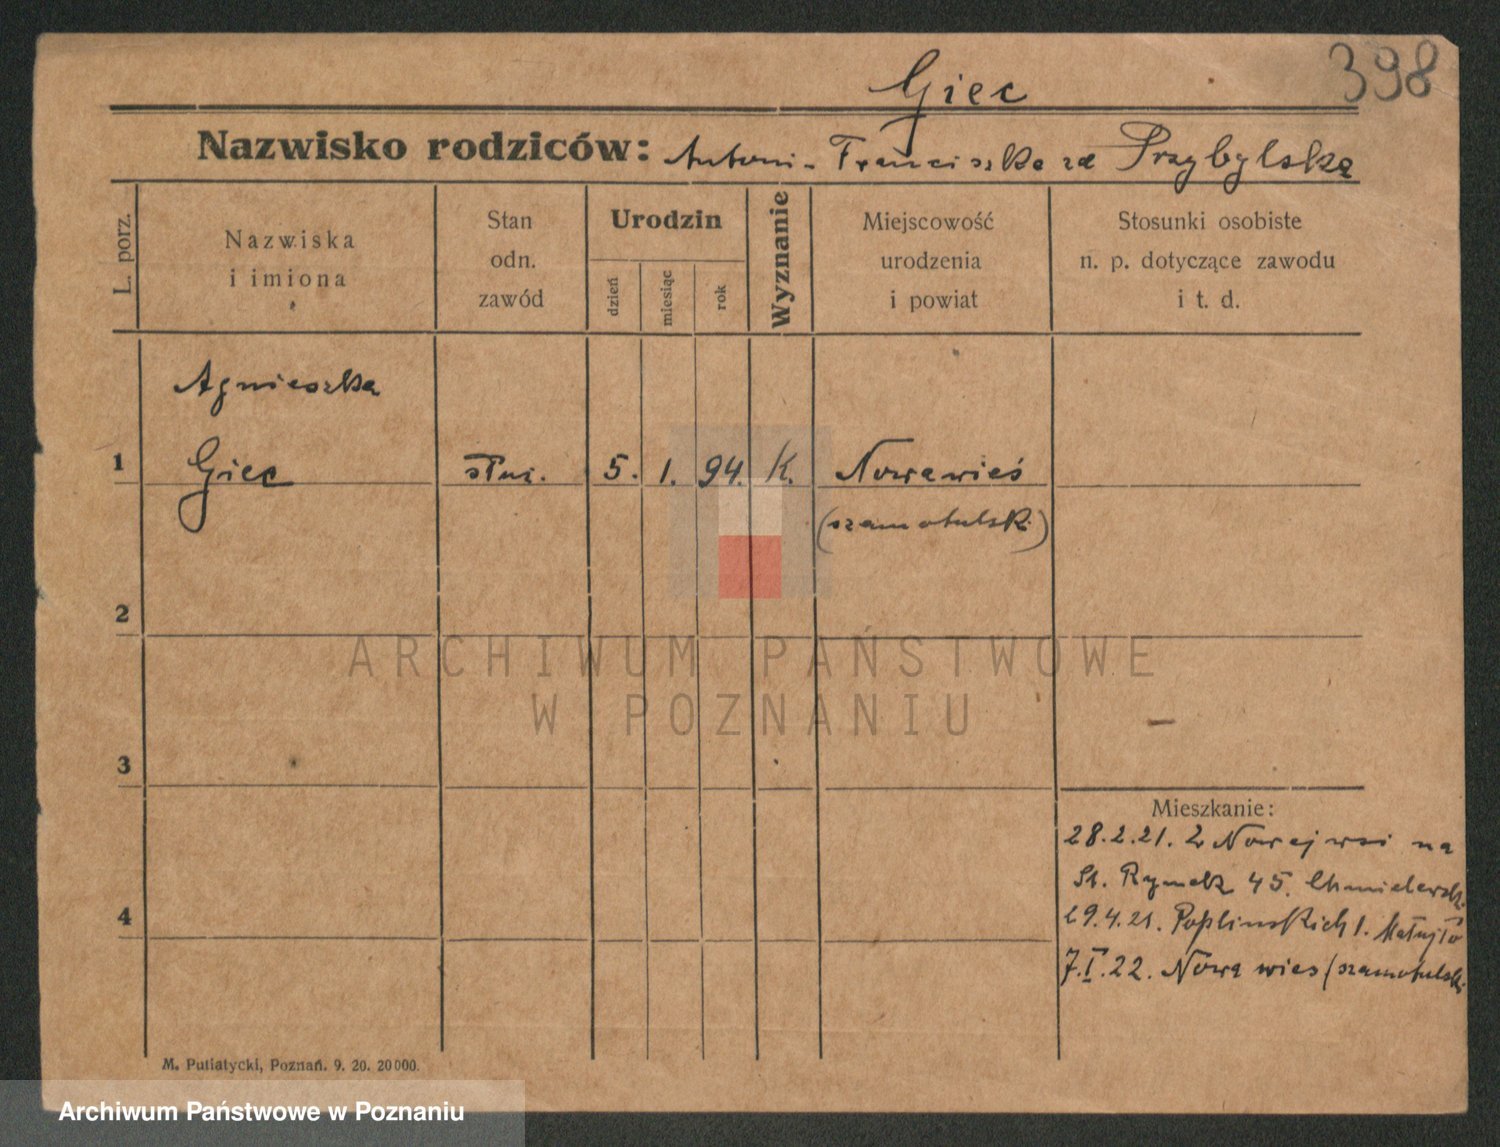 398
Giec
Nazwisko rodziców: Antoni - Franciszka zd Przybylska
L. porz.
Nazwiska
i imiona
Stan
odn.
zawód
Urodzin
dzień
miesiąc
rok
Wyznanie
Miejscowość
urodzenia
i powiat
Stosunki osobiste
n. p. dotyczące zawodu
i t. d.
Agnieszka
1 Giec służ. 5. 1. 94. K. Nowawieś
(szamotulsk.)
2
ARCHIWUM PAŃSTWOWE
W POZNANIU
3
Mieszkanie:
28.2.21. z Nowej wsi na
St. Rynek 45. Chmielewsk.
4
29.4.21. Poplinskich 1. Matujło
7.I.22. Nowa wies (szamotulsk.
M. Putiatycki, Poznań. 9. 20. 20000.
Archiwum Państwowe w Poznaniu